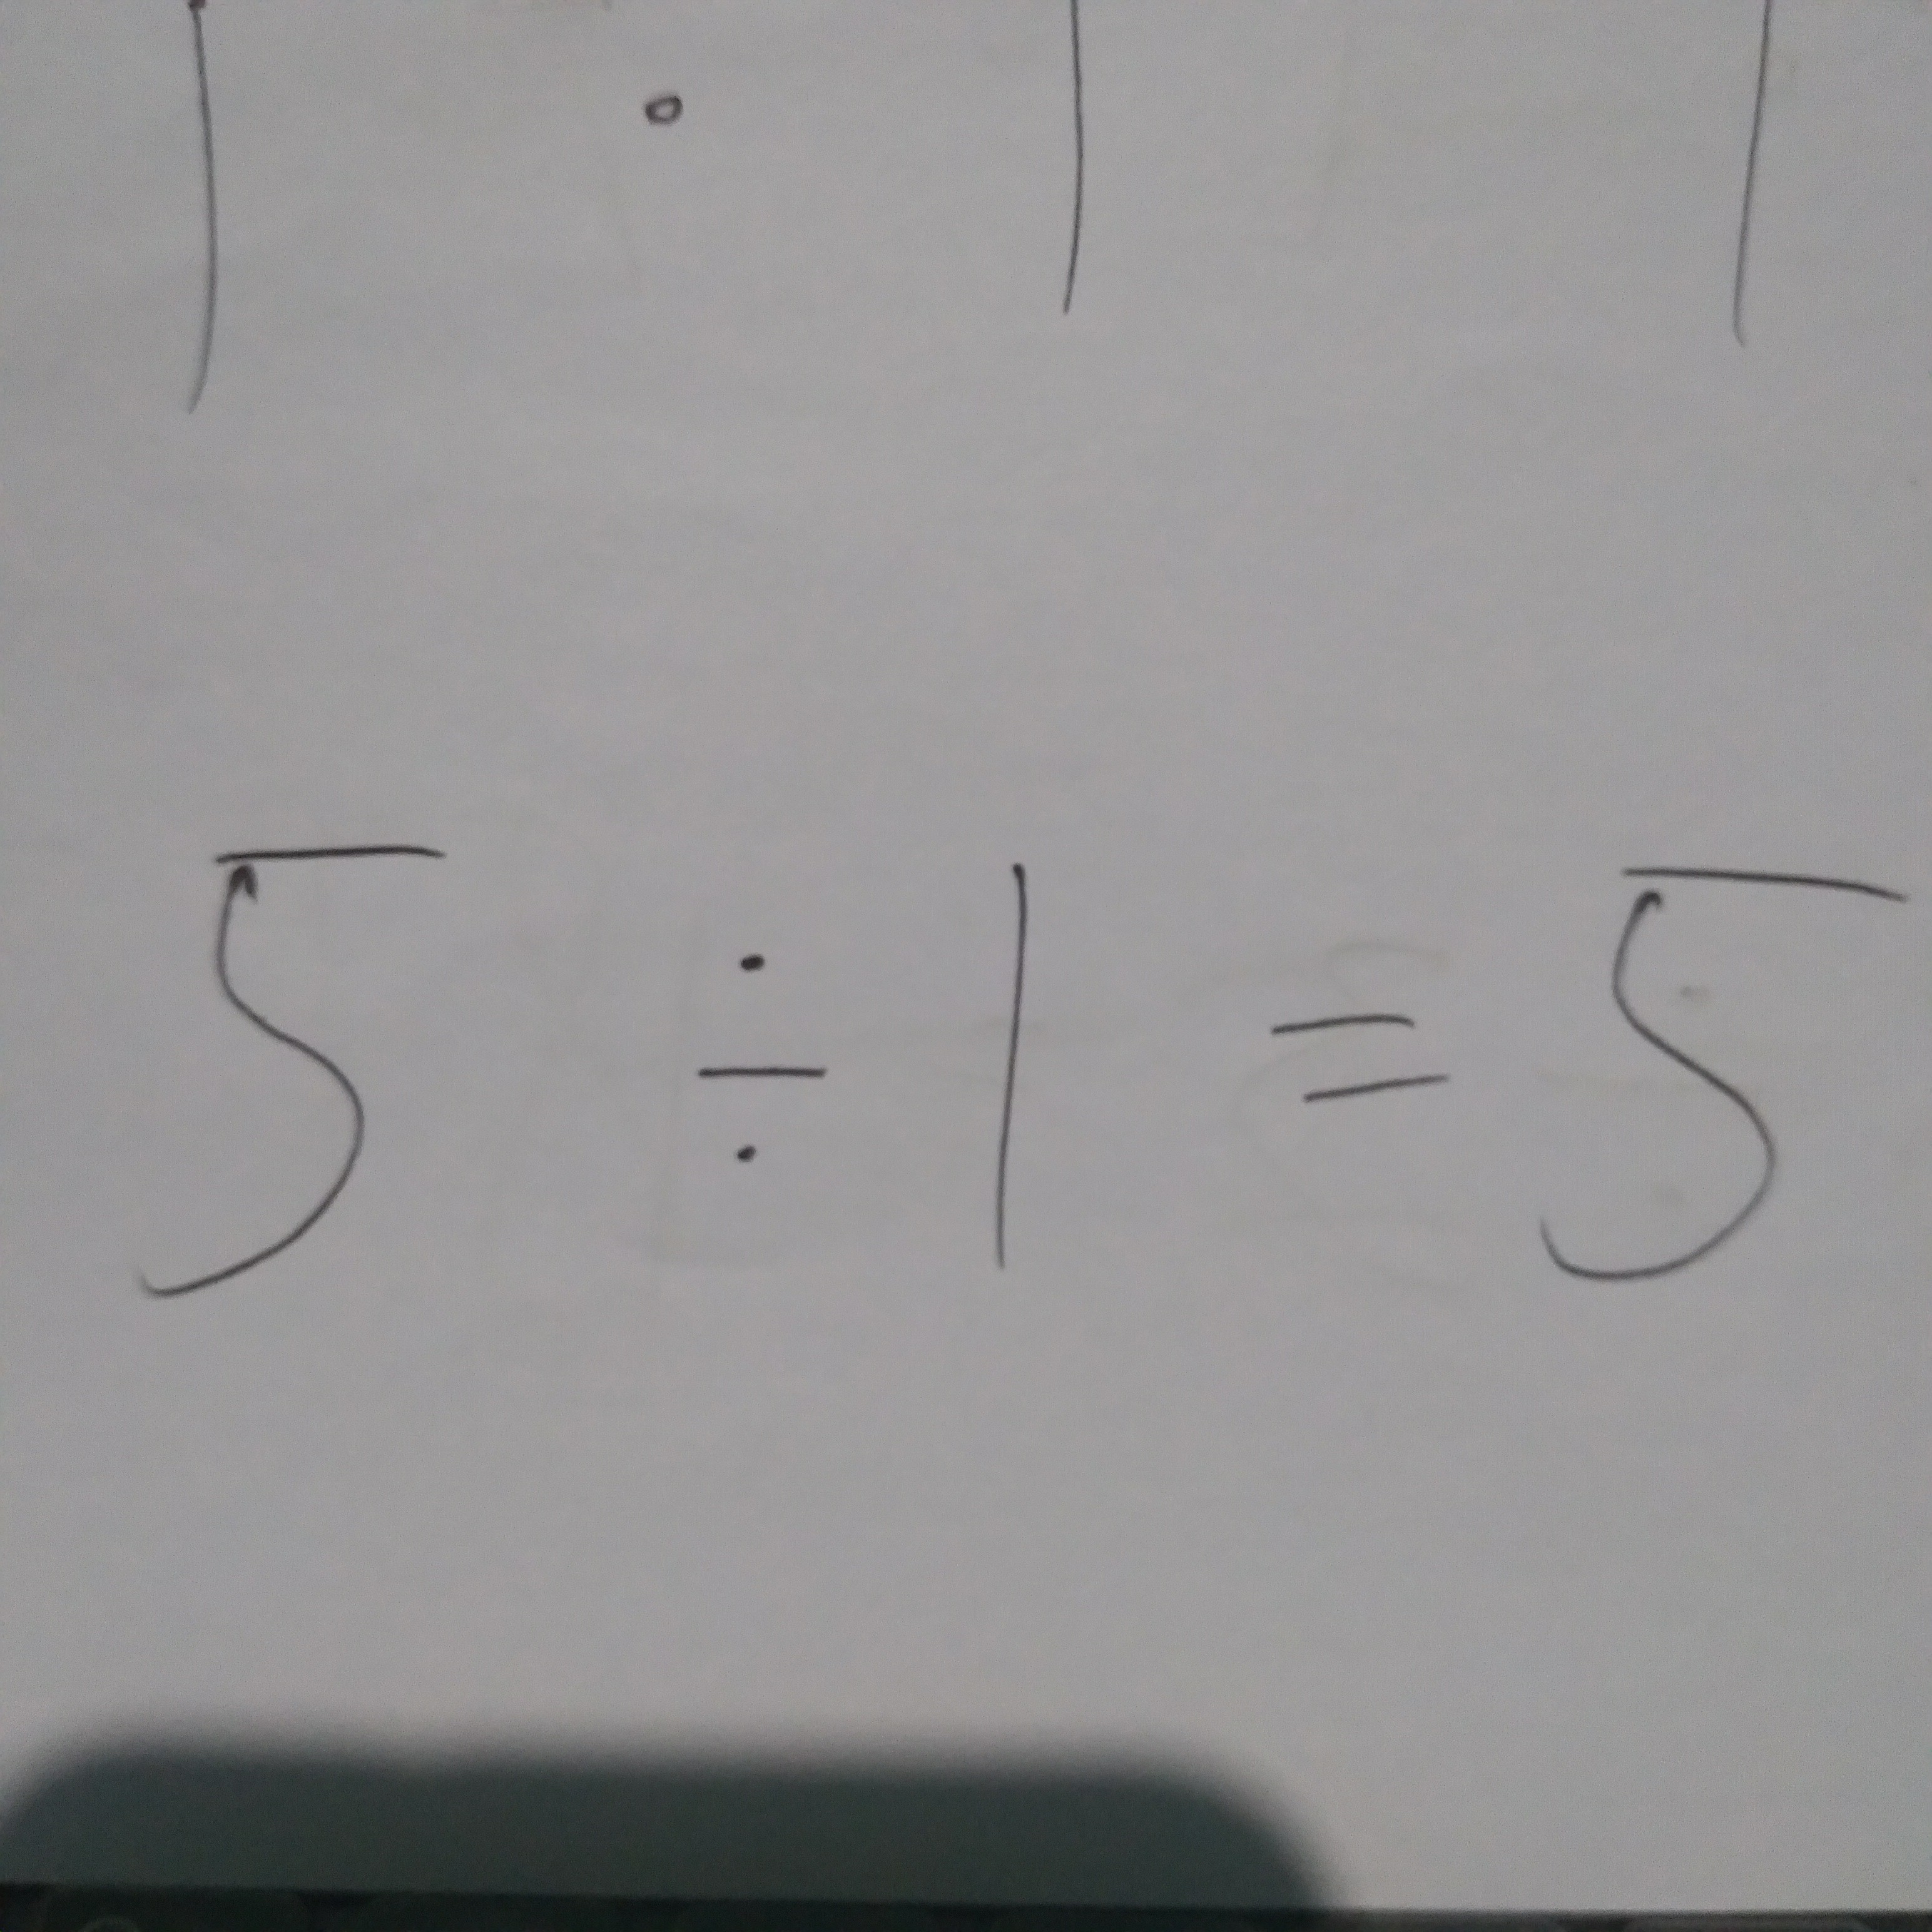 5 ÷ 1 = 5